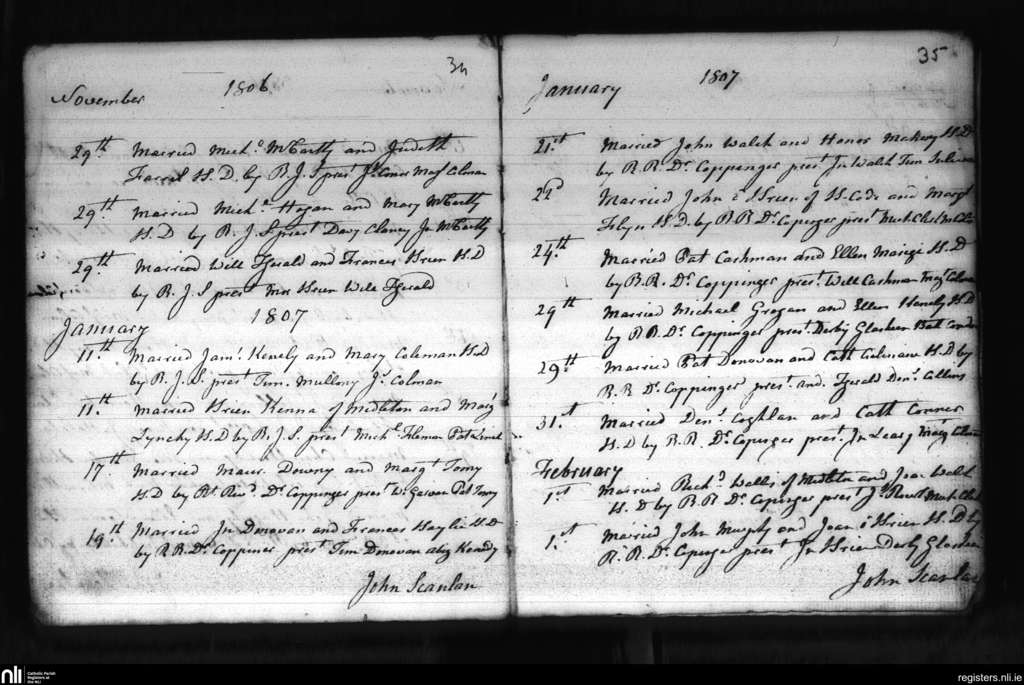 34
November 1806
29th Married Michl. McCarthy and Judeth
Farrel H. D. by R. J. S prest. Jn. Conor Mary Colman
29th Married Michl. Hogan and Mary McCarthy
H. D by R. J. S prest. Davy Clancy Jn. McCarthy
29th Married Will Fgerald and Frances Brien H. D
by R. J. S prest Will Fgerald
January 1807
11th Married Jams. Kenely and Mary Coleman H. D
by R. J. S. prest Tim. Mullony Jn. Colman
11th Married Brien Kenna of Midleton and Margt
Lynchy H. D by R. J. S. prest Michl. Pat
17th Married Maur. Downy and Margt Tomy
H. D by Rt. Revd. Dr. Coppinger prest Wm. Garvan Pat Tomy
19th Married Jn. Donovan and Frances H. D
by R. R. Dr. Coppiner prest Tim Donovan Kenedy
John Scanlan
35
January 1807
21.st Married John Walsh and Honor H. D
by R. R. Dr. Coppinger prest Jn. Walsh Tim
22d Married John o Brien of H. Code and Margt
Flyn H. D. by R R Dr. Copinger prest
24.th Married Pat Cashman and Ellen H. D
by R. R. Dr. Coppinger prest. Will Cashman
29th Married Michael Grogan and Ellen Kenely H. D
by R. R. Dr. Coppinger prest. Derby Glasheen Bat
29.th Married Pat Donovan and Cath H. D by
R. R Dr. Coppinger prest. and. Fgerald Dens. Collins
31.st Married Dens. Coghlan and Cath Connor
H. D by R. R. Dr. Copinger prest. Jn Leary
February
1st Married Richd. Wallis of Midleton and Joan Walsh
H. D by R. R Dr. Copinger prest
1.st Married John Murphy and Joan o Brien H. D by
R. R. Dr. Copinger prest Jn Brien Derby Glasheen
John Scanlan
nli Catholic Parish
Registers at
the NLI
registers.nli.ie